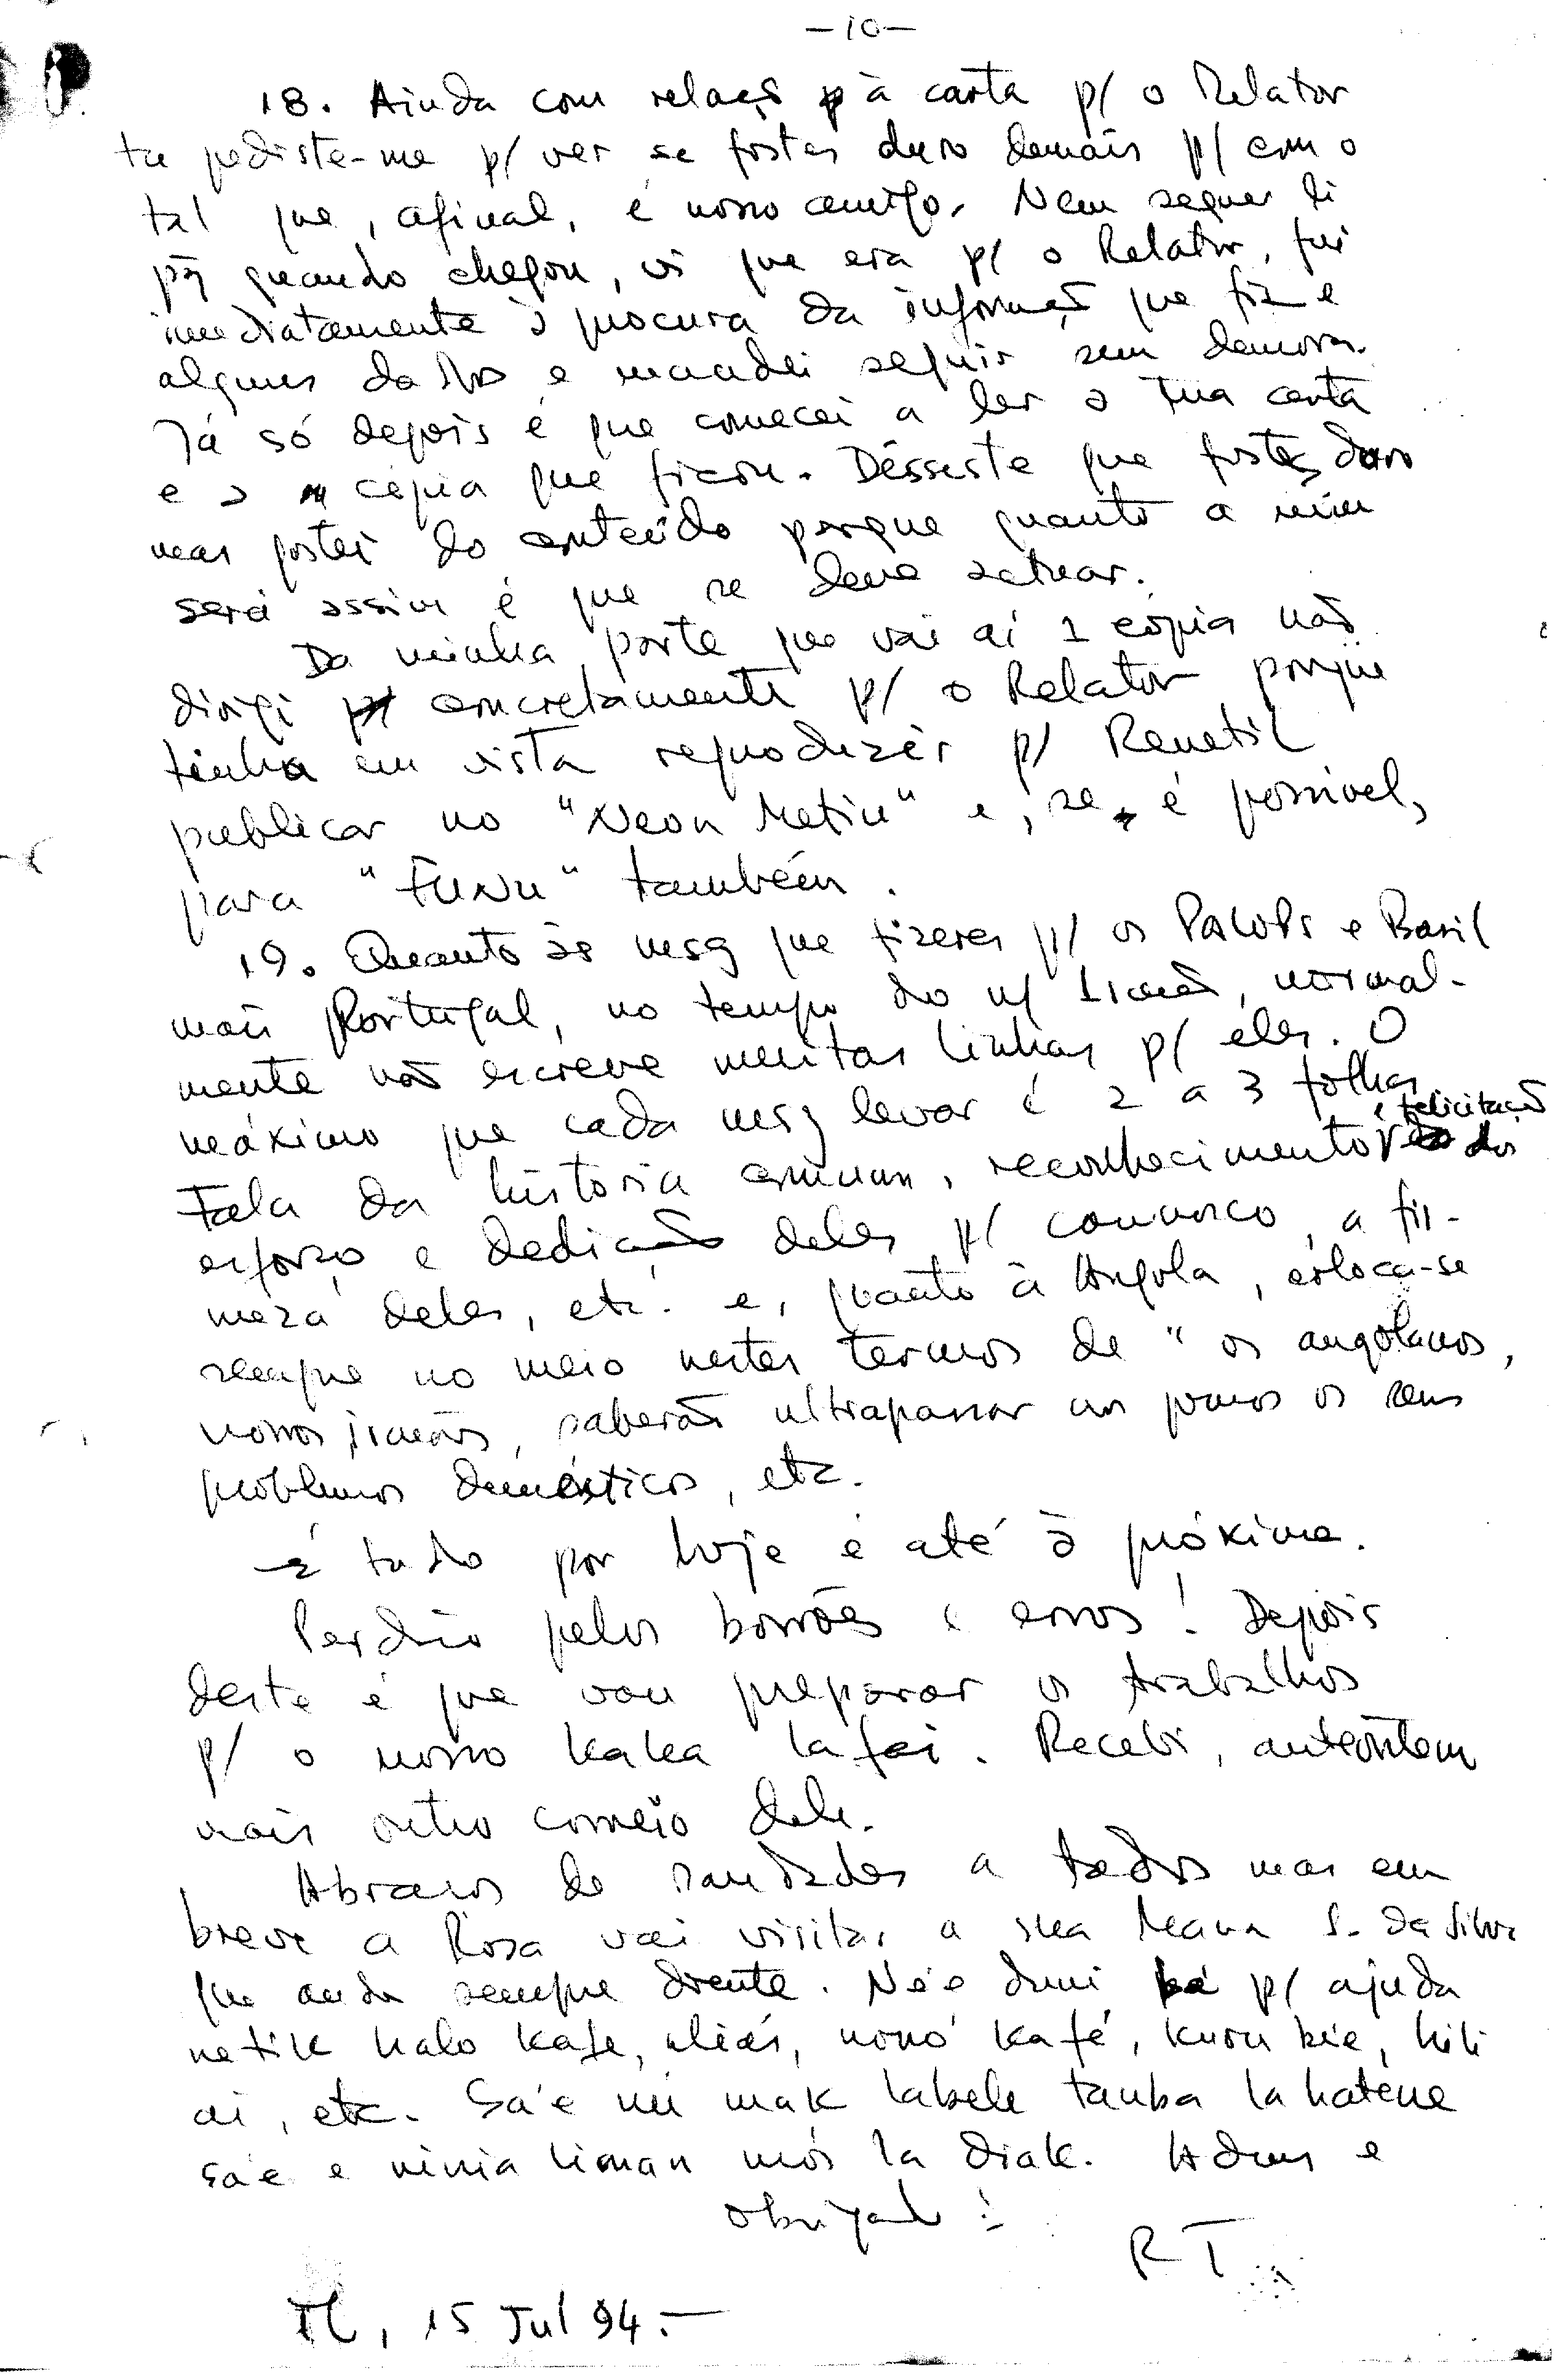 —10—
18. Ainda com relaçã à carta p/ o Relator
tu pediste-me p/ ver se fostes duro demais p/ com o
tal que, afinal, é nosso amigo. Nem sequer li
pq quando chegou, vi que era p/ o Relator, fui
imediatamente à procura da informaçã que fiz e
algumas e mandei seguir sem demora.
Já só depois é que comecei a ler a tua carta
e a cópia que ficou. Disseste que fostes duro
mas gostei do conteúdo porque quanto a mim
será assim é que se deve actuar.
Da minha parte que vai aí 1 cópia nã
dirigi concretamente p/ o Relator porque
tinha em vista reproduzir p/ Renetil
publicar no "Neon Metin" e, se é possível,
para "FUNU" também.
19. Quanto às msg que fizeres p/ os PALOPs e Basil
mais Portugal, no tempo do n/ Irmã, normal-
mente nã escreve muitas linhas p/ eles. O
máximo que cada msg levar é 2 a 3 folhas
e felicitaçã
Fala da história comum, reconhecimento dos
esforço e dedicação deles p/ connosco, a fir-
meza deles, etc. e, quanto à Angola, coloca-se
sempre no meio nestes termos de "os angolanos,
nossos irmãos, saberão ultrapassar aos poucos os seus
problemas domésticos, etc.
É tudo por hoje e até à próxima.
Perdão pelos borrões e erros! Depois
deste é que vou preparar os trabalhos
p/ o nosso kaka lafai. Recebi, anteontem
mais outro correio dele.
Abraços de saudades a todos mas em
breve a Rosa vai visitar a sua Mana S. da Silva
que anda sempre doente. Né'e duni bá p/ ajuda
netik halo kafe, aliás, nonó kafé, kuru bée, hili
ai, etc. Sa'e nú mak labele tanba la hatene
sa'e e ninia liman mós la diak. Adeus e
obrigado!
RT
TL, 15 Jul 94.—